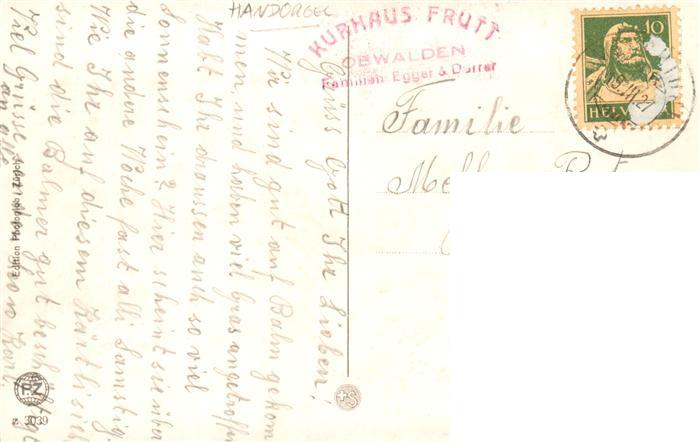 HANDORGEL
KURHAUS FRUTT
OBWALDEN
Familien Egger & Durrer
10
HELVETIA
Familie
Grüss Gott Ihr Lieben!
Wir sind gut auf Balm gekom
men, und haben viel Gras angetroffen
Habt Ihr draussen auch so viel
Sonnenschein? Hier scheint sie über
die andere Woche fast alli Samstig.
Wie Ihr auf diesem Kärtli sieht
sind die Balmer gut beschäftigt
Viel Grüsse
an alle
Karl
Edition Photoglob, Zürich
P.Z
3039
+S